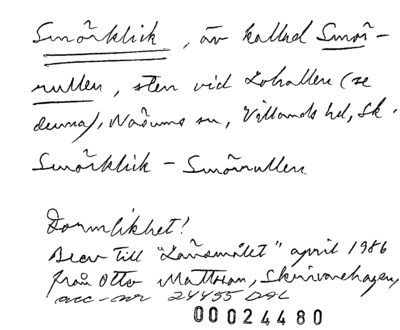 Smörklick, äv kallad Smör-
rullen, sten vid Lohallen (se
denna), Näsums sn, Villands hd, Sk.
Smörklick – Smörrullen
Formlikhet!
Brev till "Länsmålet" april 1986
från Otto Mattsson,
acc-nr 24455 DAL
00024480